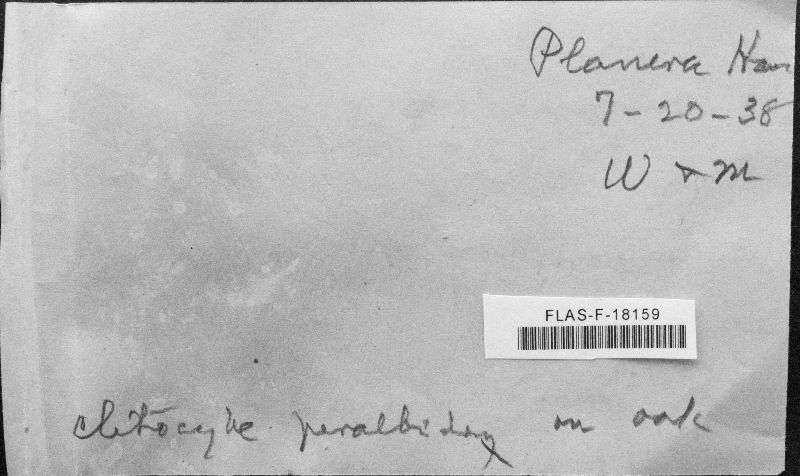 Planera Ham
7-20-38
W & M
FLAS-F-18159
clitocybe peralbida on oak